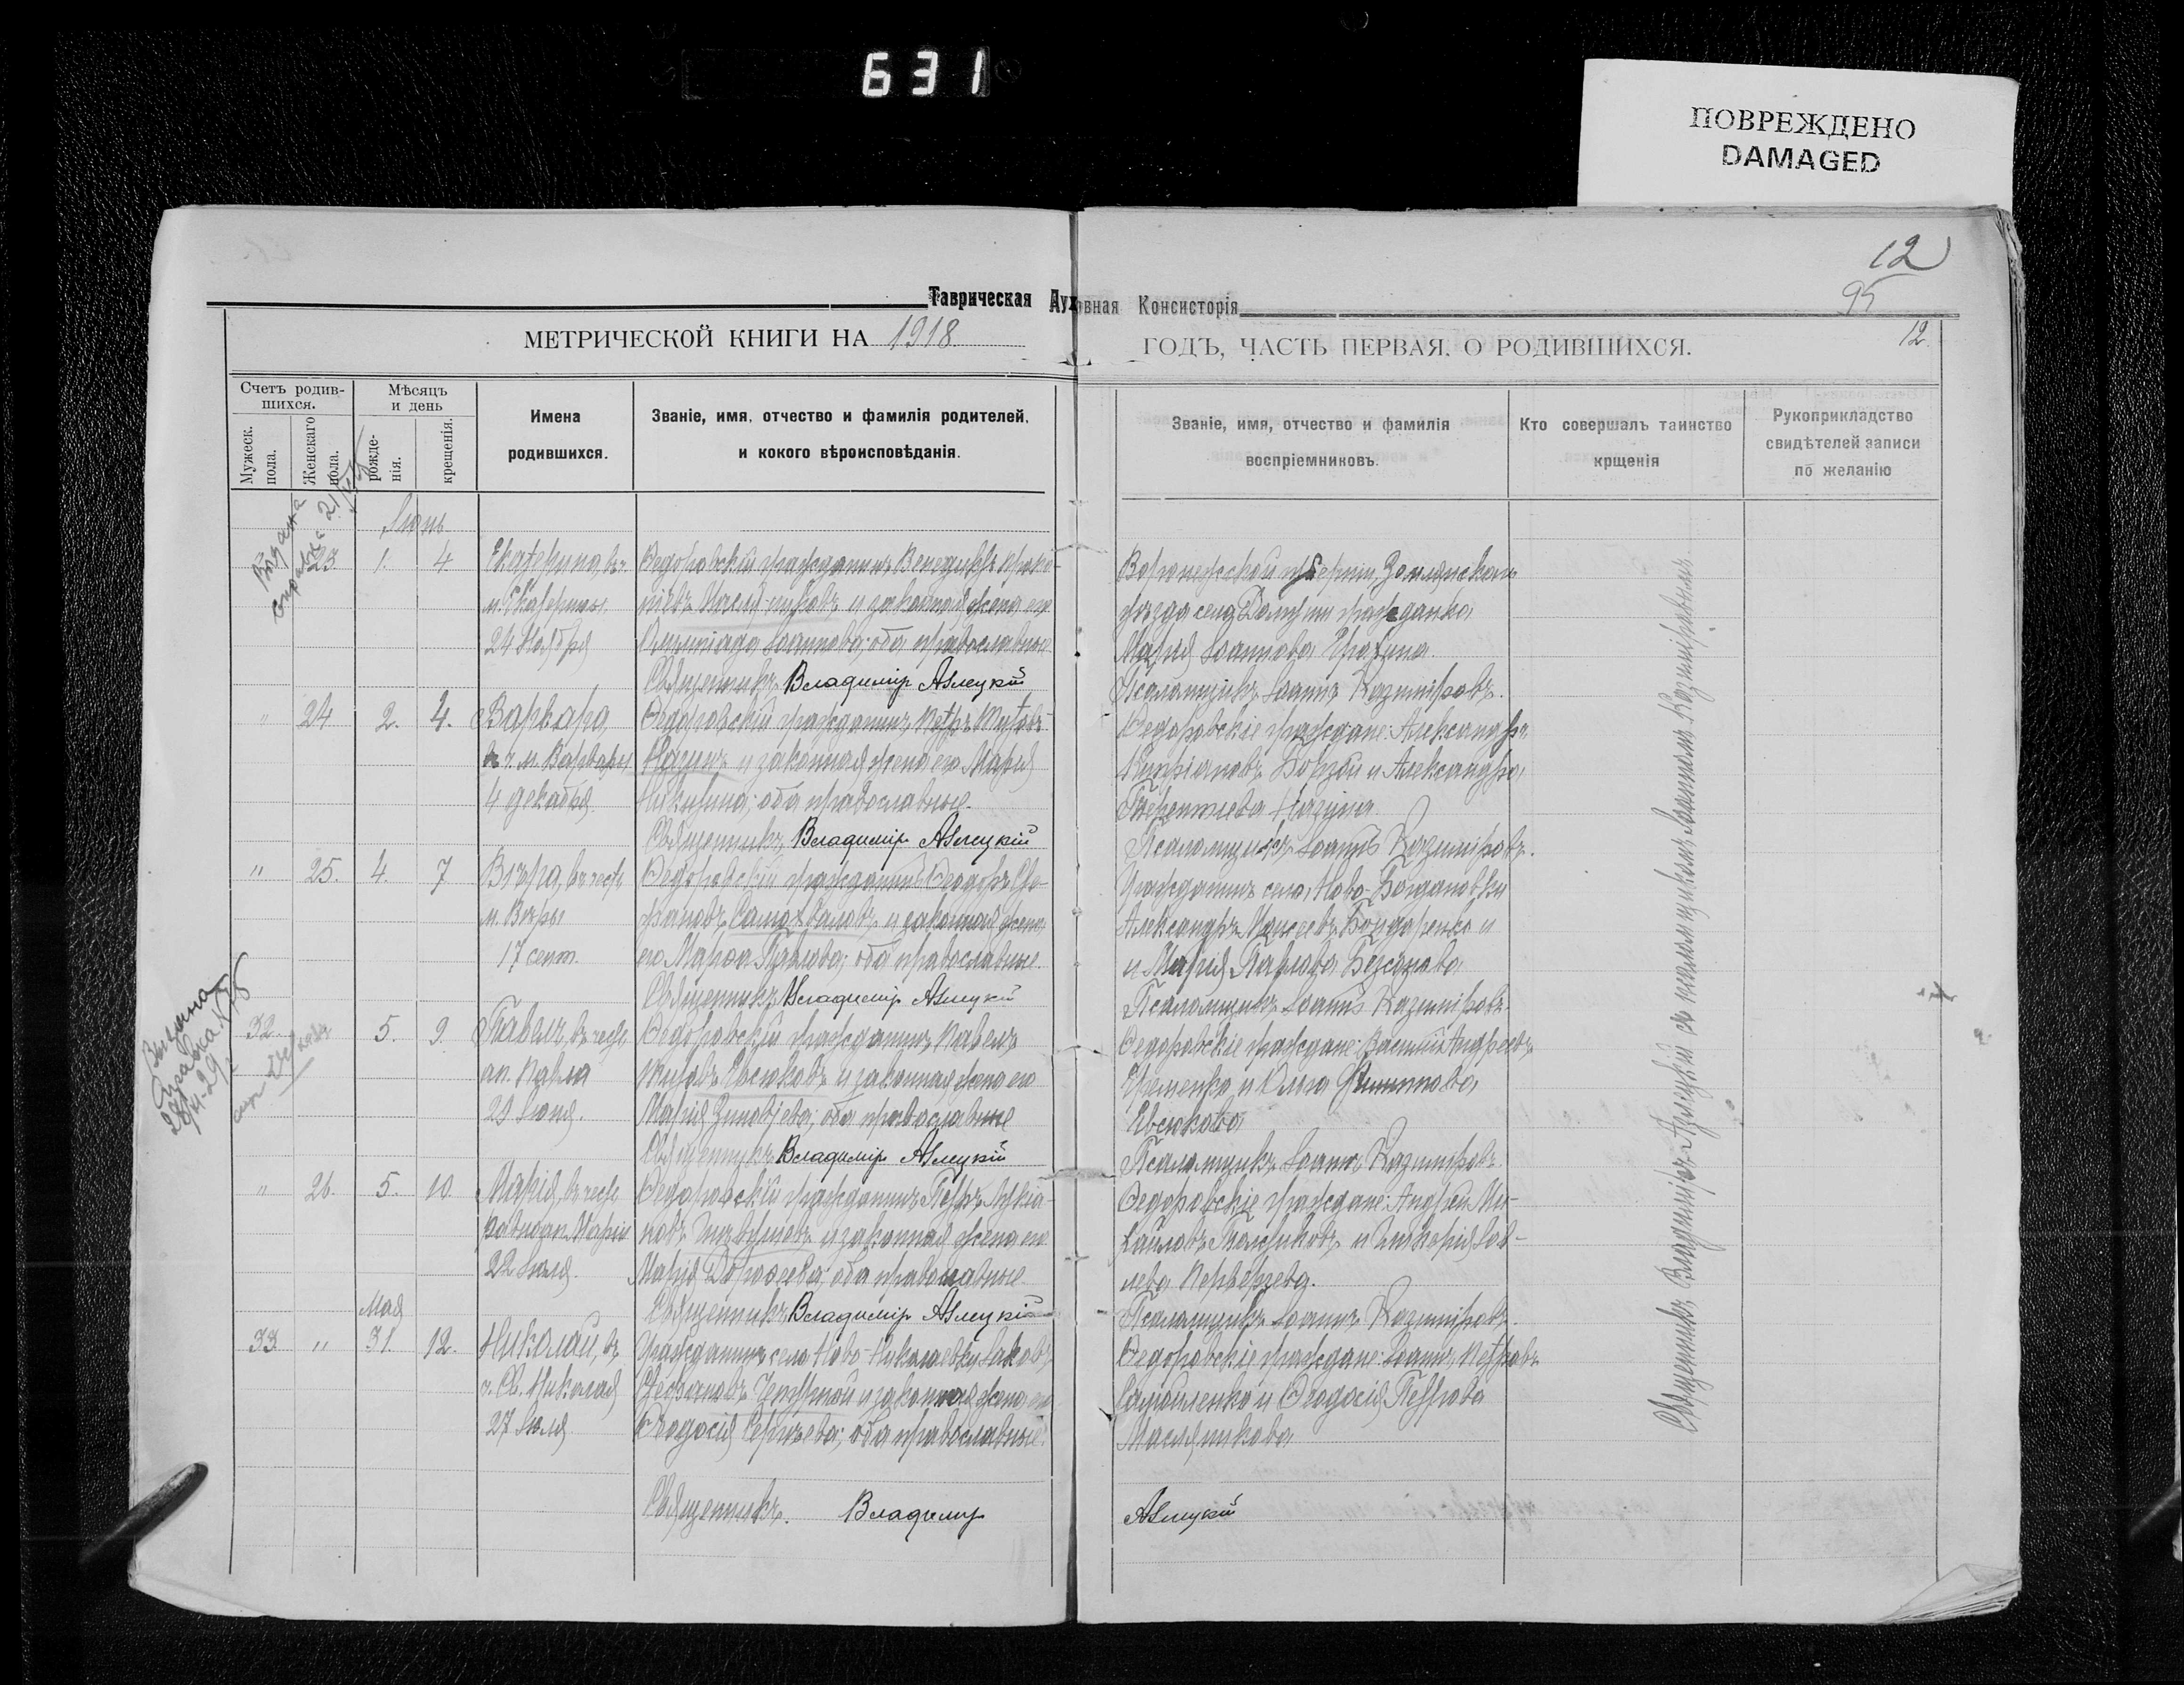 631
ПОВРЕЖДЕНО
DAMAGED
12
95
Таврическая Духовная Консисторія
МЕТРИЧЕСКОЙ КНИГИ НА 1918
ГОДЪ, ЧАСТЬ ПЕРВАЯ, О РОДИВШИХСЯ.
12.
Счетъ родив-
шихся.
Мужеск.
пола.
Женскаго
пола.
Мѣсяцъ
и день
рожде-
нія.
крещенія.
Имена
родившихся.
Званіе, имя, отчество и фамилія родителей,
и кокого вѣроисповѣданія.
Званіе, имя, отчество и фамилія
воспріемниковъ.
Кто совершалъ таинство
крщенія
Рукоприкладство
свидѣтелей записи
по желанію
Выдана
справка 21/
Іюнь
23. 1. 4
Екатерина, въ ч.
м. Екатерины
24 Ноября
Ѳедоровскій гражданинъ Венедиктъ Проко-
піевъ и законная жена его
Олимпіада Іоаннова; оба православные
Священникъ Владиміръ Азлецкій
Воронежской губерніи Землянскаго
уѣзда села гражданка
Марія Іоаннова
Псаломщикъ Іоаннъ Казиміровъ.
" 24 2. 4.
Варвара,
въ ч. м. Варвары
4 декабря
Ѳедоровскій гражданинъ Петръ Титовъ
и законная жена его Марія
Никитина; оба православные.
Священникъ Владиміръ Азлецкій
Ѳедоровскіе граждане: Александръ
Кипріановъ и Александра
Терентіева
Псаломщикъ Іоаннъ Казиміровъ.
" 25. 4. 7
Вѣра, въ честь
м. Вѣры
17 сент.
Ѳедоровскій гражданинъ Ѳеодоръ Сте-
фановъ Самохваловъ и законная жена
его Марѳа Павлова; оба православные.
Священникъ Владиміръ Азлецкій
Гражданинъ села Ново-Богдановки
Александръ Моисеевъ Бондаренко и
и Марія Павлова
Псаломщикъ Іоаннъ Казиміровъ
Выдана
справка №
32. 5. 9.
Павелъ, въ честь
ап. Павла
29 Іюня.
Ѳедоровскій гражданинъ Павелъ
Титовъ Евсюковъ и законная жена его
Марія Зиновіева; оба православные
Священникъ Владиміръ Азлецкій
Ѳедоровскіе граждане: Василій Андреевъ
Еременко и Ольга Филиппова
Евсюкова
Псаломщикъ Іоаннъ Казиміровъ
" 26. 5. 10.
Марія, въ честь
равноап. Маріи
22 Іюля.
Ѳедоровскій гражданинъ Петръ Лукіа-
новъ и законная жена его
Марія Дороѳеева; оба православные.
Священникъ Владиміръ Азлецкій
Ѳедоровскіе граждане: Андрей Ми-
хайловъ и Гликерія Іов-
лева
Псаломщикъ Іоаннъ Казиміровъ.
Мая
33. " 31. 12.
Николай, въ
ч. св. Николая
27 Іюля
Гражданинъ села Ново-Николаевки Іаковъ
Стефановъ и законная жена его
Ѳеодосія Сергѣева; оба православные.
Ѳедоровскіе граждане: Іоаннъ Петровъ
Самойленко и Ѳеодосія Петрова
Маслянникова
Священникъ. Владиміръ Азлецкій
Священникъ Владиміръ Азлецкій съ псаломщикомъ Іоанномъ Казиміровымъ